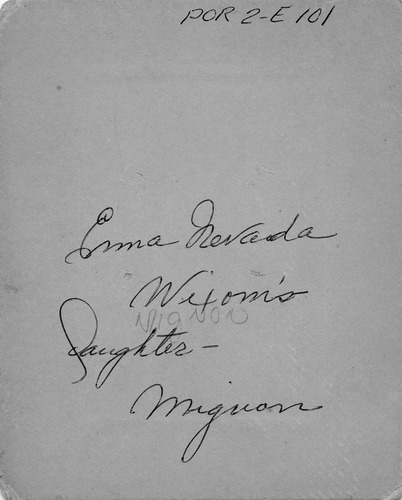 POR 2-E 101
Emma Nevada
Wixom's
MIGNON
Daughter-
Mignon